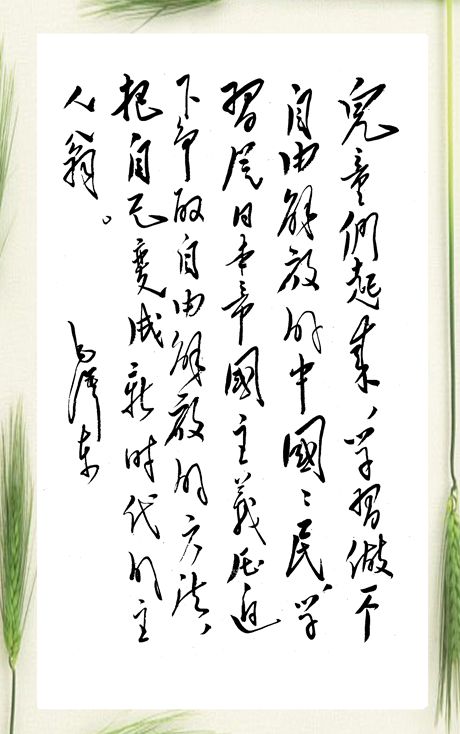 兒童們起来，学習做一个
自由解放的中國〻民，学
習從日本帝國主義压迫
下争取自由解放的方法，
把自己變成新时代的主
人翁。
毛澤东